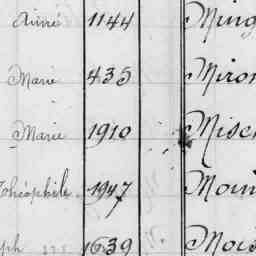 Aimé 1144 Ming
Marie 435 Miron
Marie 1910 Misch
Théophile 1947
ph 1639